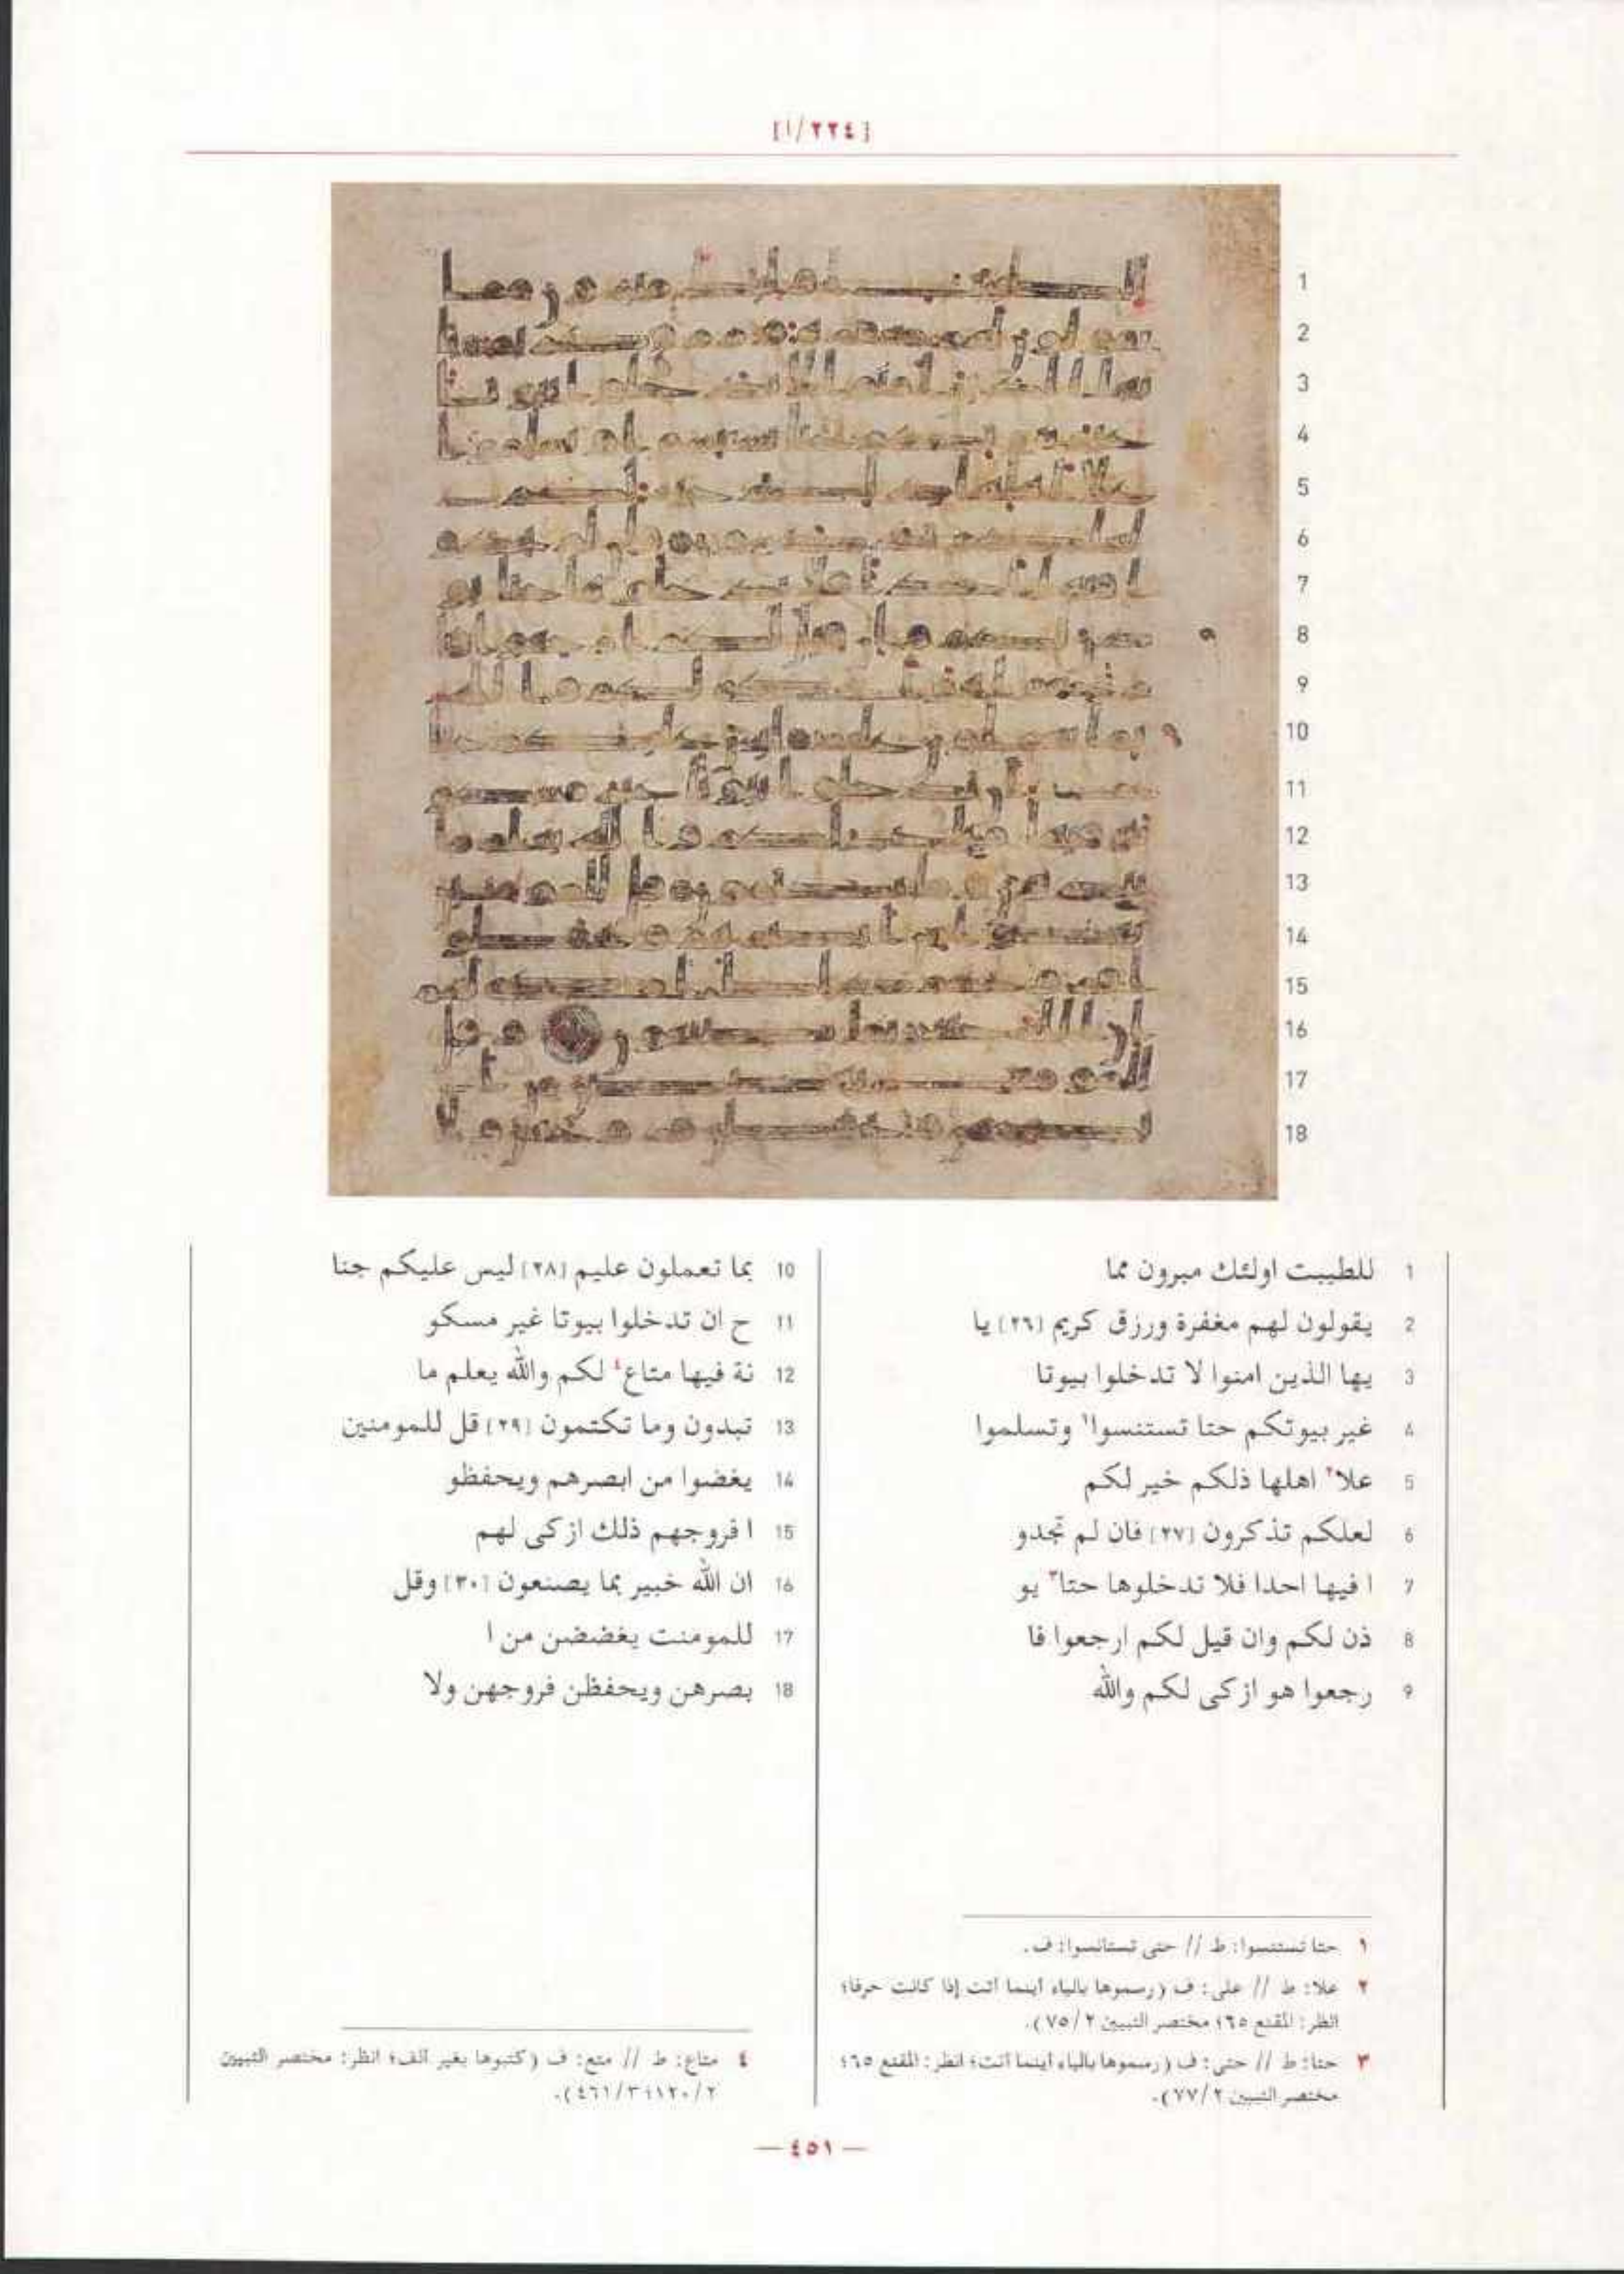 [٢٢٤/ا]
1 للطيبت اولئك مبرون مما
2 يقولون لهم مغفرة ورزق كريم [٢٦] يا
3 يها الذين امنوا لا تدخلوا بيوتا
4 غير بيوتكم حتا تستنسوا١ وتسلموا
5 علا٢ اهلها ذلكم خير لكم
6 لعلكم تذكرون [٢٧] فان لم تجدو
7 ا فيها احدا فلا تدخلوها حتا٣ يو
8 ذن لكم وان قيل لكم ارجعوا فا
9 رجعوا هو ازكى لكم والله
10 بما تعملون عليم [٢٨] ليس عليكم جنا
11 ح ان تدخلوا بيوتا غير مسكو
12 نة فيها متاع٤ لكم والله يعلم ما
13 تبدون وما تكتمون [٢٩] قل للمومنين
14 يغضوا من ابصرهم ويحفظو
15 ا فروجهم ذلك ازكى لهم
16 ان الله خبير بما يصنعون [٣٠] وقل
17 للمومنت يغضضن من ا
18 بصرهن ويحفظن فروجهن ولا
١ حتا تستنسوا: ط // حتى تستانسوا: ف.
٢ علا: ط // على: ف (رسموها بالياء أينما أتت إذا كانت حرفا؛
انظر: المقنع ٦٥؛ مختصر التبيين ٧٥/٢).
٣ حتا: ط // حتى: ف (رسموها بالياء أينما أتت؛ انظر: المقنع ٦٥؛
مختصر التبيين ٧٧/٢).
٤ متاع: ط // متع: ف (كتبوها بغير ألف؛ انظر: مختصر التبيين
٢/١٢٠؛ ٣/٤٦١).
— ٤٥١ —